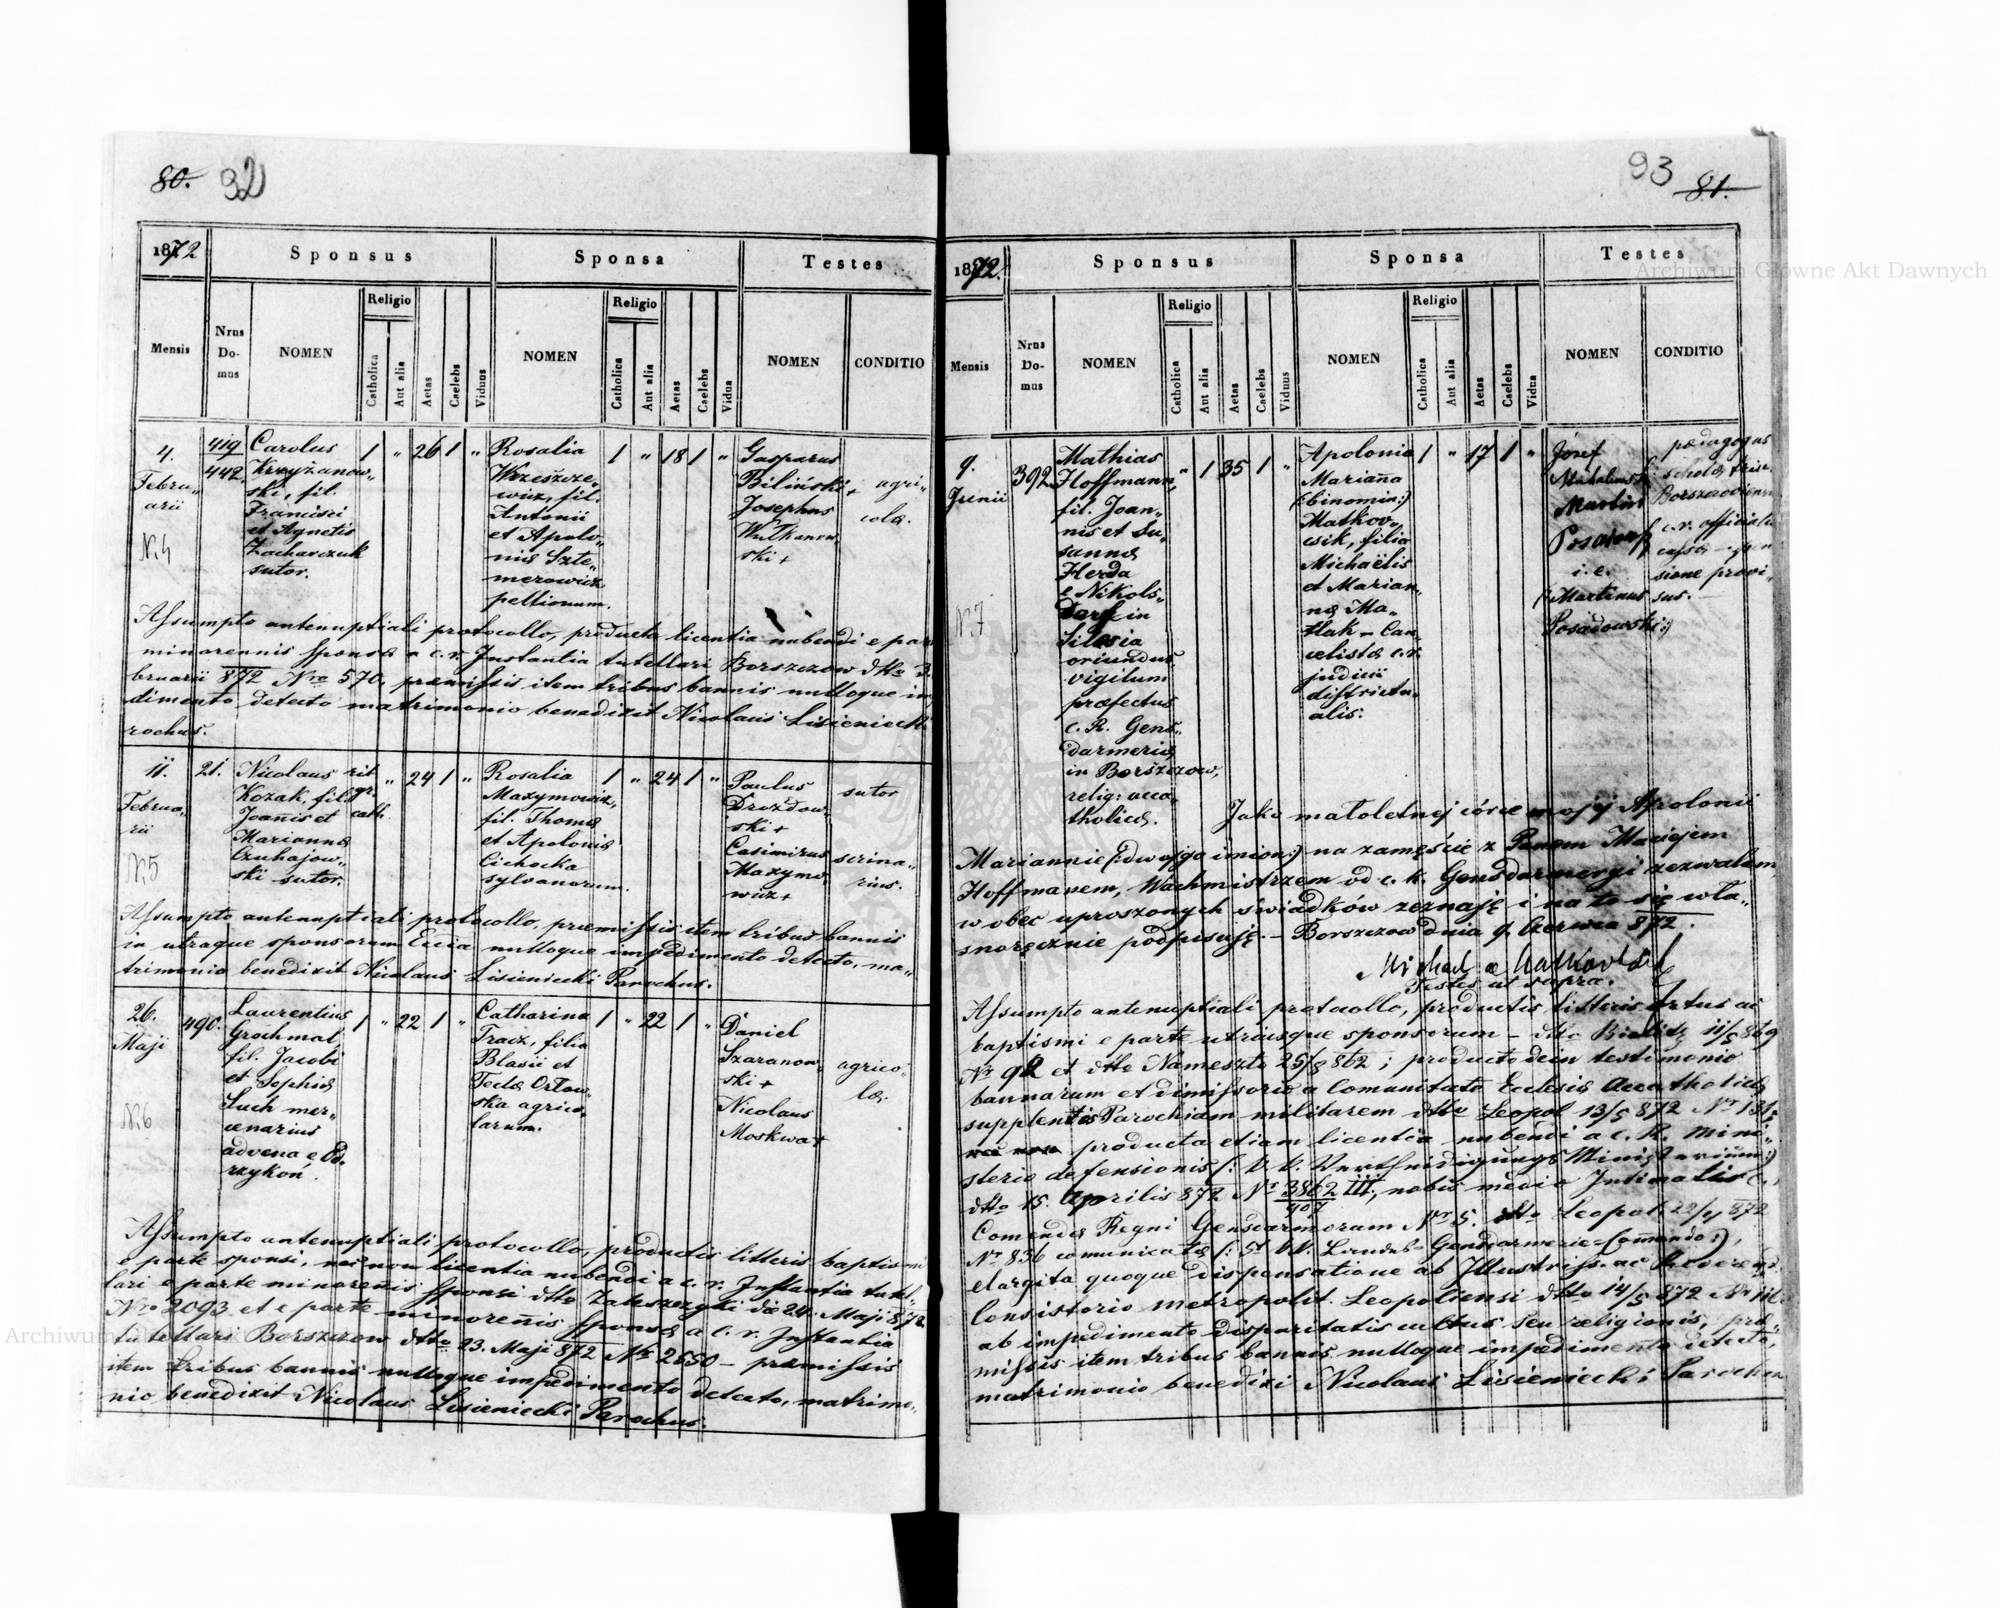 80. 92
1872
Sponsus
Sponsa
Testes
Mensis
Nrus Domus
NOMEN
Religio
Catholica
Aut alia
Aetas
Caelebs
Viduus
NOMEN
Religio
Catholica
Aut alia
Aetas
Caelebs
Vidua
NOMEN
CONDITIO
4.
Febru„
arii
N.4
419
442.
Carolus
Krzyżanow„
ski, fil.
Francisci
et Agnetis
Zacharczuk
sutor.
1 „ 26 1 „
Rosalia
Wrzeszcze„
wicz, fil.
Antonii
et Apolo„
niæ Szte„
merowicz
pellionum.
1 „ 18 1 „
Gasparus
Biliński +
Josephus
ski +
agri„
colæ.
Assumpto antenuptiali protocollo, producta licentia nubendi e par
minorennis sponsæ a c. r. Instantia tutellari Borszczow dtto 3.
bruarii 872 Nro 570, præmissis item tribus bannis nulloque im
dimento detecto matrimonio benedixit Nicolaus Lisieniecki
rochus.
11.
Februa„
rii
N.5
21.
Nicolaus
Kozak, fil.
Joanis et
Marianna
Czuhajow„
ski sutor.
rit
gr.
cath.
„ 24 1 „
Rosalia
Maxymowicz,
fil. Thomæ
et Apolonia
Cichocka
sylvanorum.
1 „ 24 1 „
Paulus
Drozdow„
ski +
Casimirus
Maxymo„
wicz +
sutor
scrina„
rius.
Assumpto antenuptiali protocollo, præmissis item tribus bannis
in utraque sponsorum Ecclia, nulloque impedimento detecto, ma„
trimonio benedixit Nicolaus Lisieniecki Parochus.
26.
Maji
N.6
490.
Laurentius
Grochmal
fil. Jacobi
et Sophiæ
Such mer„
cenarius
advena e Od„
rzykoń.
1 „ 22 1 „
Catharina
Tracz, filia
Blasii et
Teclæ Orłow„
ska agrico„
larum.
1 „ 22 1 „
Daniel
Szaranow„
ski +
Nicolaus
Moskwa +
agrico„
læ.
Assumpto antenuptiali protocollo, productis litteris baptismi
e parte sponsi, nec non licentia nubendi a c. r. Instantia tutel„
lari e parte minorenis sponsi dtto Zaleszczyki die 24. Maji 872
Nro 2093 et e parte minorenis sponsæ a c. r. Instantia
tutellari Borszczow dtto 23. Maji 872 Nr 2650 – præmissis
item tribus bannis nulloque impedimento detecto, matrimo„
nio benedixit Nicolaus Lisieniecki Parochus.
93 81.
1872.
Sponsus
Sponsa
Testes
Mensis
Nrus Domus
NOMEN
Religio
Catholica
Aut alia
Aetas
Caelebs
Viduus
NOMEN
Religio
Catholica
Aut alia
Aetas
Caelebs
Vidua
NOMEN
CONDITIO
9.
Junii
N.7
392.
Mathias
Hoffmann,
fil. Joan„
nis et Su„
sannæ
Herda
e Nikols„
dorf in
Silesia
oriundus,
vigilum
præfectus
c. R. Gens„
darmeriæ
in Borszczow,
relig: aca„
tholicæ.
„ 1 35 1 „
Apolonia
Mariana
(:binomin:)
Matkov„
csik, filia
Michaëlis
et Marian„
næ Ma„
tlak – Can„
celistæ c. r.
judicii
districtu„
alis.
1 „ 17 1 „
Józef
Martin
i. e.
(:Martinus
Posadowski:)
pædagogus
scholæ
c. r. officialis
sione provi„
sus.
Jako małoletnej córce mojej Apolonii
Mariannie (:dwojga imion:) na zamęście z Panem Maciejem
Hoffmanem, Wachmistrzem od c. k. Gensdarmeryi zezwalam
w obec uproszonych świadków zeznaję i na to się wła„
snoręcznie podpisuję. – Borszczow dnia 9. Czerwca 872.
Testes ut supra.
Assumpto antenuptiali protocollo, productis litteris ortus ac
baptismi e parte utriusque sponsorum – dtto 11/5 869
Nr 92 et dtto Nameszto 25/8 862; producto dein testimonio
bannorum et dimissoriæ a Comunitate Ecclesiæ Accatholicæ
supplentis Parochiam militarem dtto Leopol 13/5 872 Nr 131;
producta etiam licentia nubendi a c. R. Mini„
sterio defensionis (: k. k. Vertheidigungs Ministerium:)
dtto 15. Aprilis 872 Nr 3862/907 III, nobis medio Intimatis c.
Comendæ Regni Gensdarmorum Nr 5. dtto Leopol 22/4 872
Nr 836 comunicatæ (: 5t k. k. Landes-Gendarmerie-Comando:),
elargita quoque dispensatione ab Illustriss. ac Reverend.
Consistorio metropolit. Leopoliensi dtto 14/5 872
ab impedimento disparitatis cultus seu religionis, præ„
missis item tribus bannis nulloque impedimento detecto,
matrimonio benedixi Nicolaus Lisieniecki Parochus
Archiwum Główne Akt Dawnych